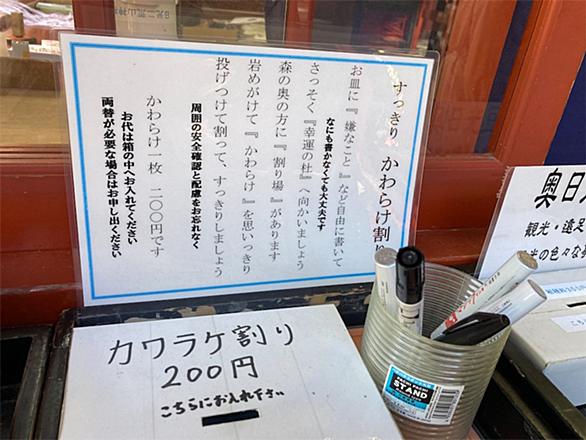 すっきり かわらけ割り
お皿に『嫌なこと』など自由に書いて
なにも書かなくても大丈夫です
さっそく『幸運の杜』へ向かいましょう
森の奥の方に『割り場』があります
岩めがけて『かわらけ』を思いっきり
投げつけて割って、すっきりしましょう
周囲の安全確認と配慮をお忘れなく
かわらけ一枚 二〇〇円です
お代は箱の中へお入れください
両替が必要な場合はお申し出ください
カワラケ割り
200円
こちらにお入れ下さい
STAND
奥日
観光・遠足
の色々な